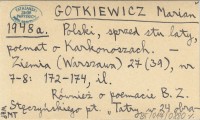 GOTKIEWICZ Marian
1948a.
Polski, sprzed stu laty,
poemat o Karkonoszach. –
Ziemia (Warszawa) 27 (39), nr
7-8: 172-174, il.
Również o poemacie B. Z.
Stęczyńskiego pt. „Tatry w 24 obra-